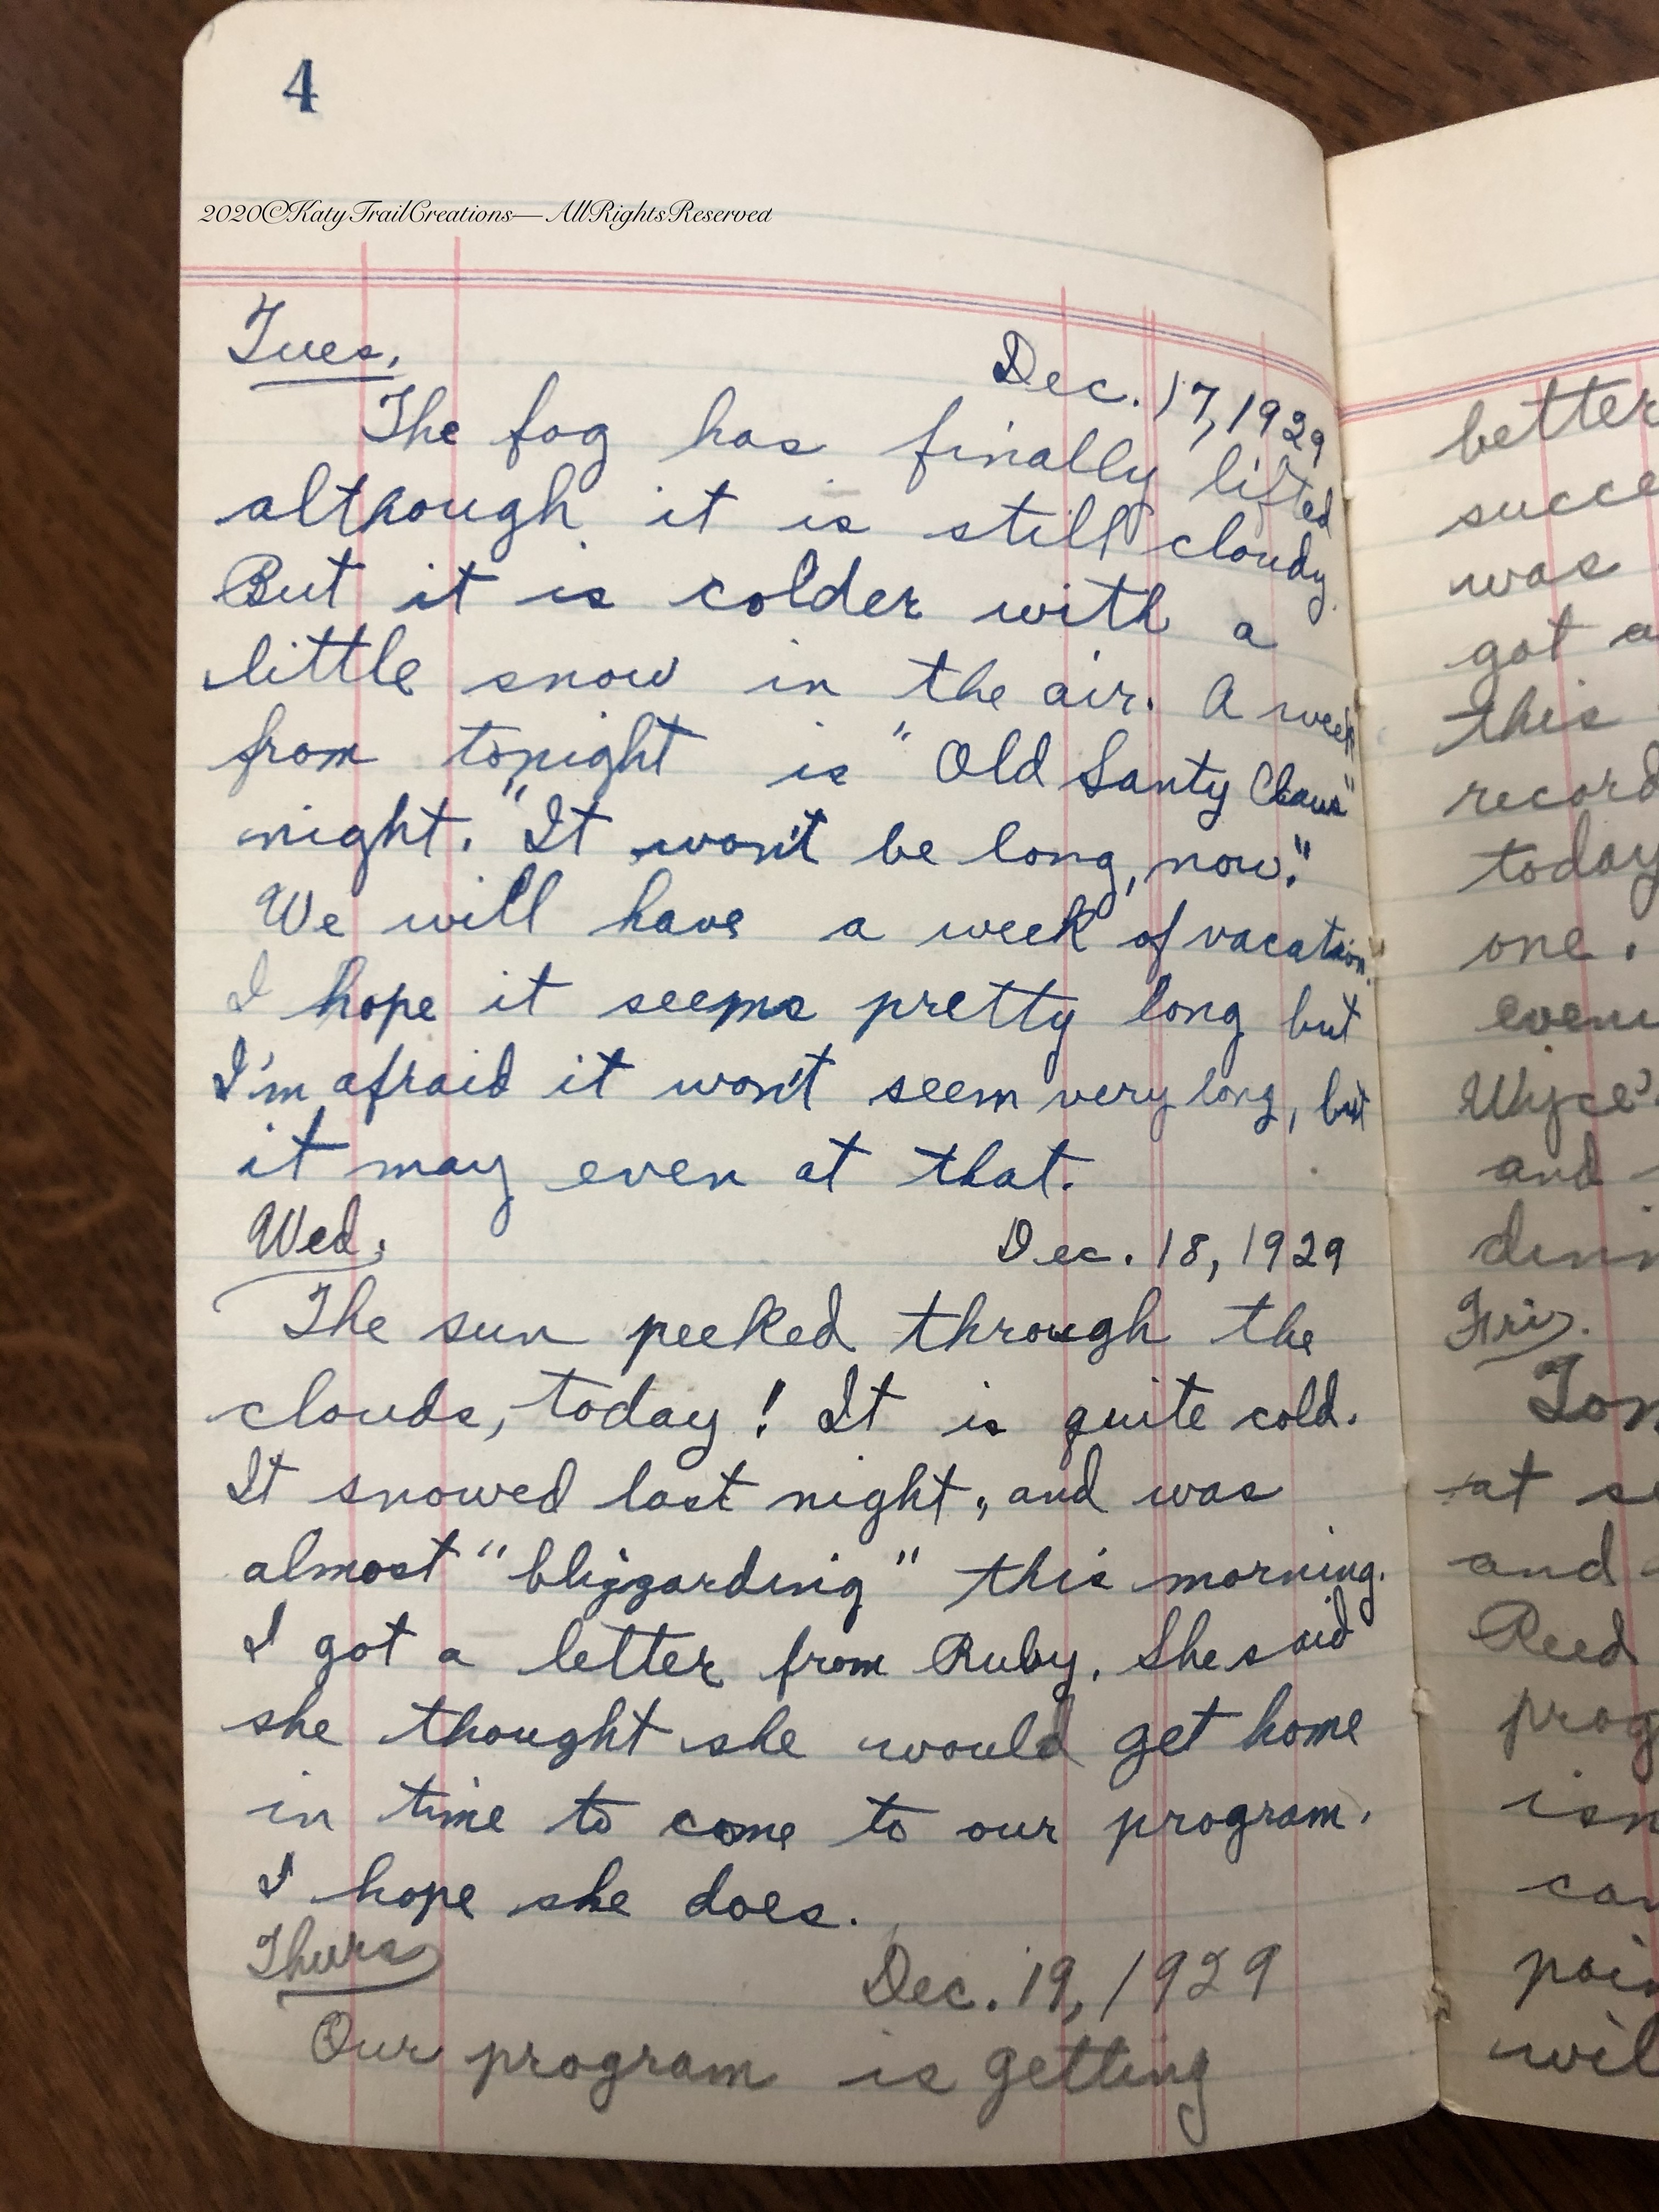 4
2020©KatyTrailCreations—AllRightsReserved
Tues,
Dec. 17, 1929
The fog has finally lifted
although it is still cloudy.
But it is colder with a
little snow in the air. A week
from tonight is "Old Santy Claus"
night. "It won't be long, now."
We will have a week of vacation.
I hope it seems pretty long but
I'm afraid it won't seem very long, but
it may even at that.
Wed,
Dec. 18, 1929
The sun peeked through the
clouds, today! It is quite cold.
It snowed last night, and was
almost "blizzarding" this morning.
I got a letter from Ruby. She said
she thought she would get home
in time to come to our program.
I hope she does.
Thurs
Dec. 19, 1929
Our program is getting
better
succe
was
got a
this
record
today
one.
eveni
and
dinn
Fri.
Ton
at se
and
Reed
prog
isn
can
poin
wil